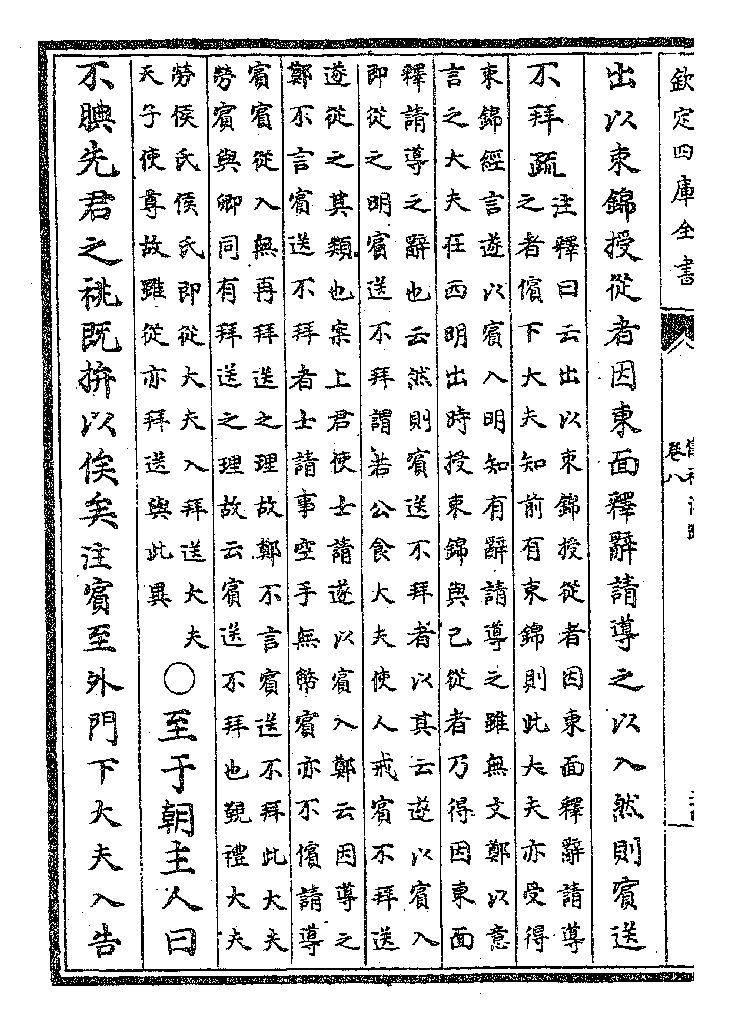 欽定四庫全書
卷八
出以束錦授從者因東面釋辭請導之以入然則賓送
不拜疏
注釋曰云出以束錦授從者因東面釋辭請導
之者儐下大夫知前有束錦則此大夫亦受得
束錦經言遂以賓入明知有辭請導之雖無文鄭以意
言之大夫在西明出時授束錦與己從者乃得因東面
釋請導之辭也云然則賓送不拜者以其云遂以賓入
即從之明賓送不拜謂若公食大夫使人戒賓不拜送
遂從之其類也案上君使士請遂以賓入鄭云因導之
鄭不言賓送不拜者士請事空手無幣賓亦不儐請導
賓賓從入無再拜送之理故鄭不言賓送不拜此大夫
勞賓與卿同有拜送之理故云賓送不拜也覲禮大夫
勞侯氏侯氏即從大夫入拜送大夫
天子使尊故雖從亦拜送與此異
○至于朝主人曰
不腆先君之祧既拚以俟矣注賓至外門下大夫入告